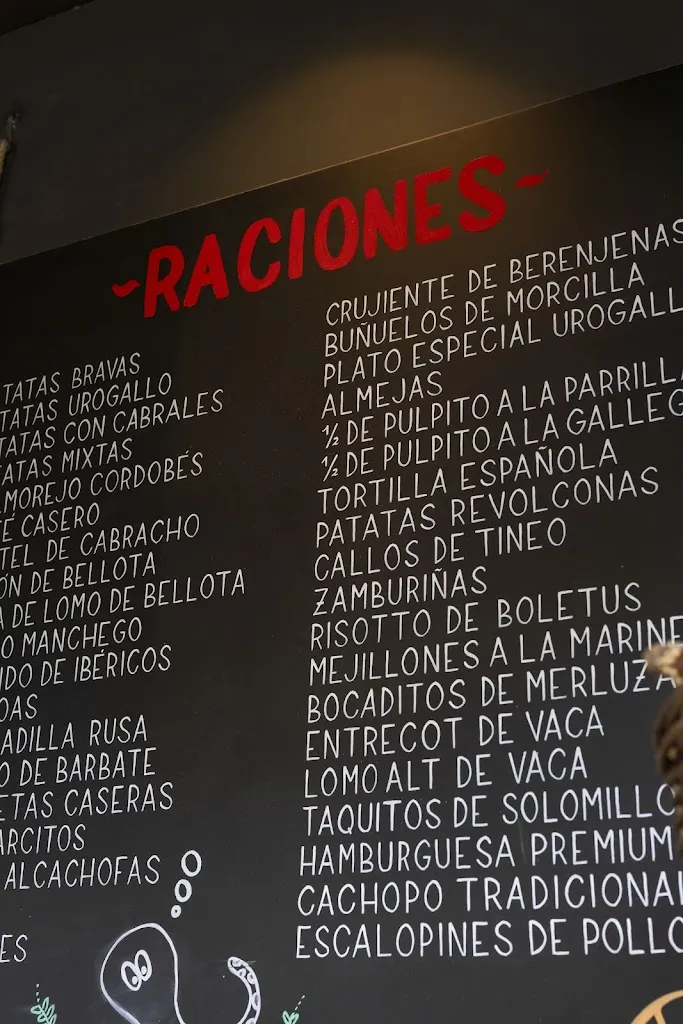 ~RACIONES~
TATAS BRAVAS
TATAS UROGALLO
TATAS CON CABRALES
TATAS MIXTAS
LMOREJO CORDOBÉS
TÉ CASERO
TEL DE CABRACHO
ÓN DE BELLOTA
A DE LOMO DE BELLOTA
O MANCHEGO
IDO DE IBÉRICOS
OAS
ADILLA RUSA
O DE BARBATE
ETAS CASERAS
ARCITOS
ALCACHOFAS
ES
CRUJIENTE DE BERENJENAS
BUÑUELOS DE MORCILLA
PLATO ESPECIAL UROGALL
ALMEJAS
½ DE PULPITO A LA PARRILLA
½ DE PULPITO A LA GALLEG
TORTILLA ESPAÑOLA
PATATAS REVOLCONAS
CALLOS DE TINEO
ZAMBURIÑAS
RISOTTO DE BOLETUS
MEJILLONES A LA MARINE
BOCADITOS DE MERLUZA
ENTRECOT DE VACA
LOMO ALT DE VACA
TAQUITOS DE SOLOMILLO
HAMBURGUESA PREMIUM
CACHOPO TRADICIONAL
ESCALOPINES DE POLLO